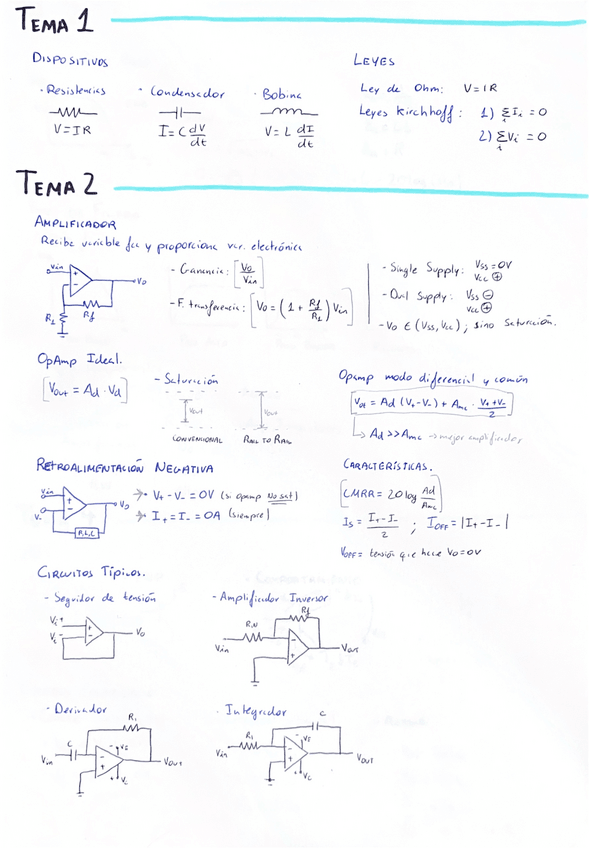 TEMA 1
DISPOSITIVOS
· Resistencias
V = IR
· Condensador
I = C dV/dt
· Bobina
V = L dI/dt
LEYES
Ley de Ohm: V = IR
Leyes Kirchhoff: 1) Σ Ii = 0
i
2) Σ Vi = 0
i
TEMA 2
AMPLIFICADOR
Recibe variable fca y proporciona var. electrónica
Vin
+
-
Vo
R1
Rf
- Ganancia: [Vo/Vin]
- F. transferencia: [Vo = (1 + Rf/R1) Vin]
- Single Supply: Vss = 0V
Vcc ⊕
- Dual Supply: Vss ⊖
Vcc ⊕
- Vo ∈ (Vss, Vcc); sino Saturación.
OpAmp Ideal.
[Vout = Ad · Vd]
- Saturación
Vout
CONVENCIONAL
Vout
RAIL TO RAIL
Opamp modo diferencial y común
Vot = Ad (V+ - V-) + Amc · (V+ + V-)/2
↳ Ad >> Amc → mejor amplificador
RETROALIMENTACIÓN NEGATIVA
Vin
V-
+
-
Vo
R, L, C
→ · V+ - V- = 0V (si opamp No sat)
→ · I+ = I- = 0A (siempre)
CARACTERÍSTICAS.
[CMRR = 20 log Ad/Amc]
Is = (I+ - I-)/2 ; IOFF = |I+ - I-|
VOFF = tensión que hace Vo = 0V
CIRCUITOS TÍPICOS.
- Seguidor de tensión
Vi +
Vi -
+
-
Vo
- Amplificador Inversor
Rf
RN
Vin
-
+
Vout
· Derivador
R1
C
Vin
-
+
- Vs
+ Vc
VOUT
· Integrador
C
R1
Vin
-
+
- Vs
+ Vc
VOUT